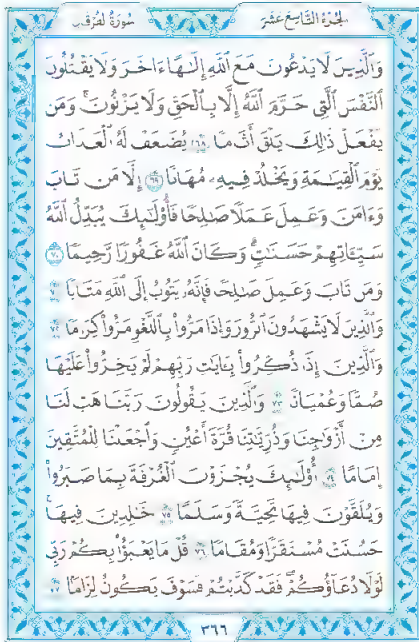 سُورَةُ الفُرْقَانِ الجُزْءُ التَّاسِعَ عَشَرَ
وَالَّذِينَ لَا يَدْعُونَ مَعَ اللَّهِ إِلَٰهًا ءَاخَرَ وَلَا يَقْتُلُونَ
النَّفْسَ الَّتِي حَرَّمَ اللَّهُ إِلَّا بِالْحَقِّ وَلَا يَزْنُونَ ۚ وَمَن
يَفْعَلْ ذَٰلِكَ يَلْقَ أَثَامًا ٦٨ يُضَٰعَفْ لَهُ الْعَذَابُ
يَوْمَ الْقِيَٰمَةِ وَيَخْلُدْ فِيهِ مُهَانًا ٦٩ إِلَّا مَن تَابَ
وَءَامَنَ وَعَمِلَ عَمَلًا صَٰلِحًا فَأُولَٰئِكَ يُبَدِّلُ اللَّهُ
سَيِّـَٔاتِهِمْ حَسَنَٰتٍ ۗ وَكَانَ اللَّهُ غَفُورًا رَّحِيمًا ٧٠
وَمَن تَابَ وَعَمِلَ صَٰلِحًا فَإِنَّهُ يَتُوبُ إِلَى اللَّهِ مَتَابًا ٧١
وَالَّذِينَ لَا يَشْهَدُونَ الزُّورَ وَإِذَا مَرُّوا۟ بِاللَّغْوِ مَرُّوا۟ كِرَامًا ٧٢
وَالَّذِينَ إِذَا ذُكِّرُوا۟ بِـَٔايَٰتِ رَبِّهِمْ لَمْ يَخِرُّوا۟ عَلَيْهَا
صُمًّا وَعُمْيَانًا ٧٣ وَالَّذِينَ يَقُولُونَ رَبَّنَا هَبْ لَنَا
مِنْ أَزْوَٰجِنَا وَذُرِّيَّٰتِنَا قُرَّةَ أَعْيُنٍ وَاجْعَلْنَا لِلْمُتَّقِينَ
إِمَامًا ٧٤ أُولَٰئِكَ يُجْزَوْنَ الْغُرْفَةَ بِمَا صَبَرُوا۟
وَيُلَقَّوْنَ فِيهَا تَحِيَّةً وَسَلَٰمًا ٧٥ خَٰلِدِينَ فِيهَا ۚ
حَسُنَتْ مُسْتَقَرًّا وَمُقَامًا ٧٦ قُلْ مَا يَعْبَؤُا۟ بِكُمْ رَبِّي
لَوْلَا دُعَاؤُكُمْ ۖ فَقَدْ كَذَّبْتُمْ فَسَوْفَ يَكُونُ لِزَامًا ٧٧
٣٦٦